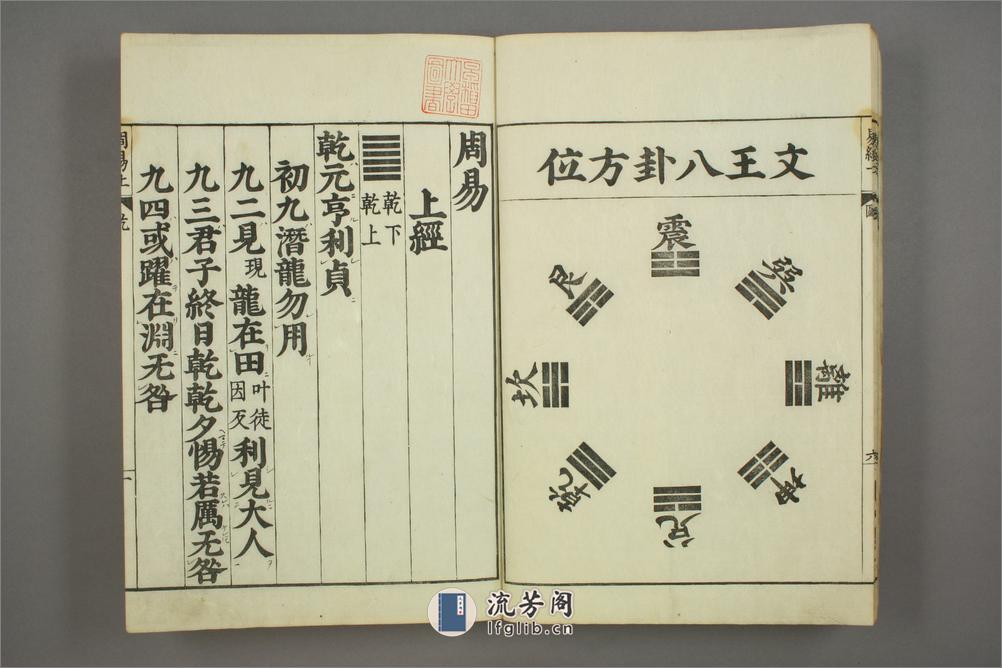 文王八卦方位
震
巽
離
坤
兌
乾
坎
艮
易經
圖
六
周易
上經
乾下
乾上
乾元亨利貞
初九潛龍勿用
九二見現龍在田叶徒因反利見大人
九三君子終日乾乾夕惕若厲无咎
九四或躍在淵无咎
周易上
乾
一
流芳阁
lfglib.cn